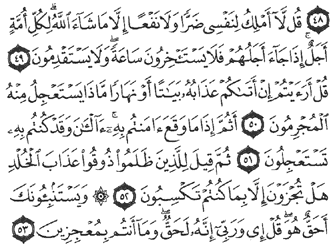 ٤٨ قُل لَّآ أَمْلِكُ لِنَفْسِى ضَرًّا وَلَا نَفْعًا إِلَّا مَا شَآءَ ٱللَّهُ ۗ لِكُلِّ أُمَّةٍ
أَجَلٌ ۚ إِذَا جَآءَ أَجَلُهُمْ فَلَا يَسْتَـْٔخِرُونَ سَاعَةً ۖ وَلَا يَسْتَقْدِمُونَ ٤٩
قُلْ أَرَءَيْتُمْ إِنْ أَتَىٰكُمْ عَذَابُهُۥ بَيَـٰتًا أَوْ نَهَارًا مَّاذَا يَسْتَعْجِلُ مِنْهُ
ٱلْمُجْرِمُونَ ٥٠ أَثُمَّ إِذَا مَا وَقَعَ ءَامَنتُم بِهِۦٓ ۚ ءَآلْـَٔـٰنَ وَقَدْ كُنتُم بِهِۦ
تَسْتَعْجِلُونَ ٥١ ثُمَّ قِيلَ لِلَّذِينَ ظَلَمُوا۟ ذُوقُوا۟ عَذَابَ ٱلْخُلْدِ
هَلْ تُجْزَوْنَ إِلَّا بِمَا كُنتُمْ تَكْسِبُونَ ٥٢ ۞ وَيَسْتَنۢبِـُٔونَكَ
أَحَقٌّ هُوَ ۖ قُلْ إِى وَرَبِّىٓ إِنَّهُۥ لَحَقٌّ ۖ وَمَآ أَنتُم بِمُعْجِزِينَ ٥٣